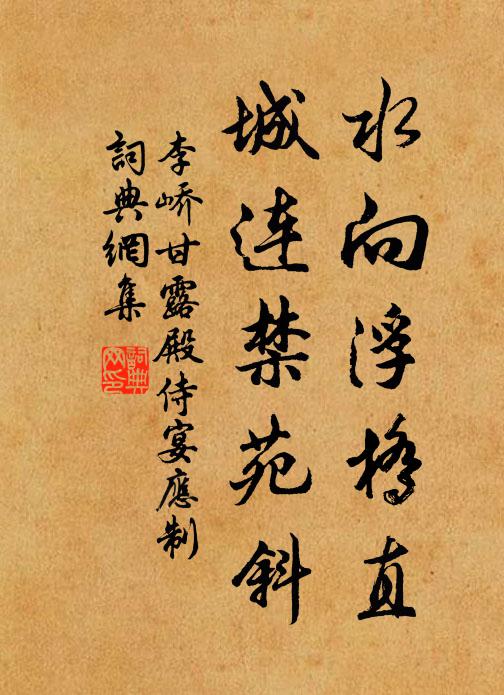 水向浮橋直
城連禁苑斜
李嶠甘露殿侍宴應制
詞典網集
詞典網印